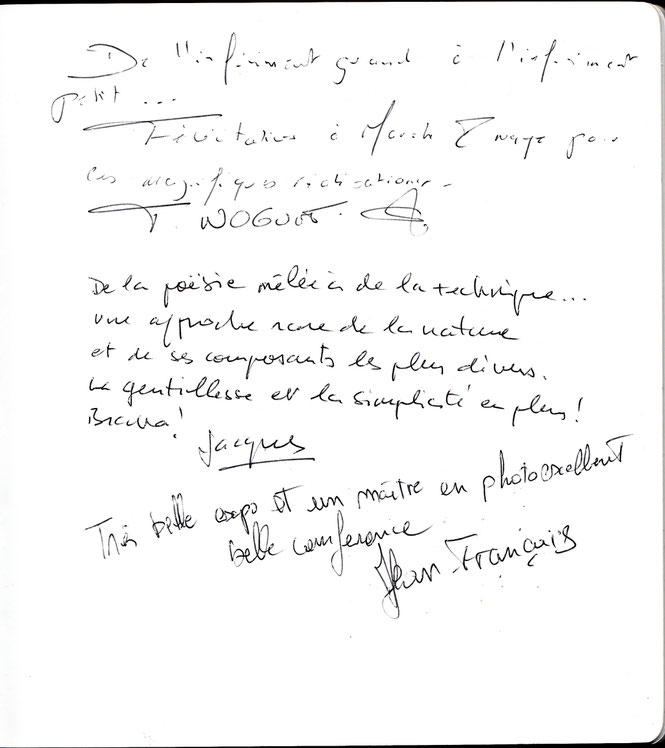 De l'infiniment grand à l'infiniment
petit ...
Félicitations à pour
ces magnifiques réalisations.
T. NOGUES.
De la poësie mêlée à de la technique...
une approche rare de la nature
et de ses composants les plus divers.
La gentillesse et la simplicité en plus!
Bravo!
Jacques
Très belle expo et un maître en photo excellent
belle conference
Jean-François